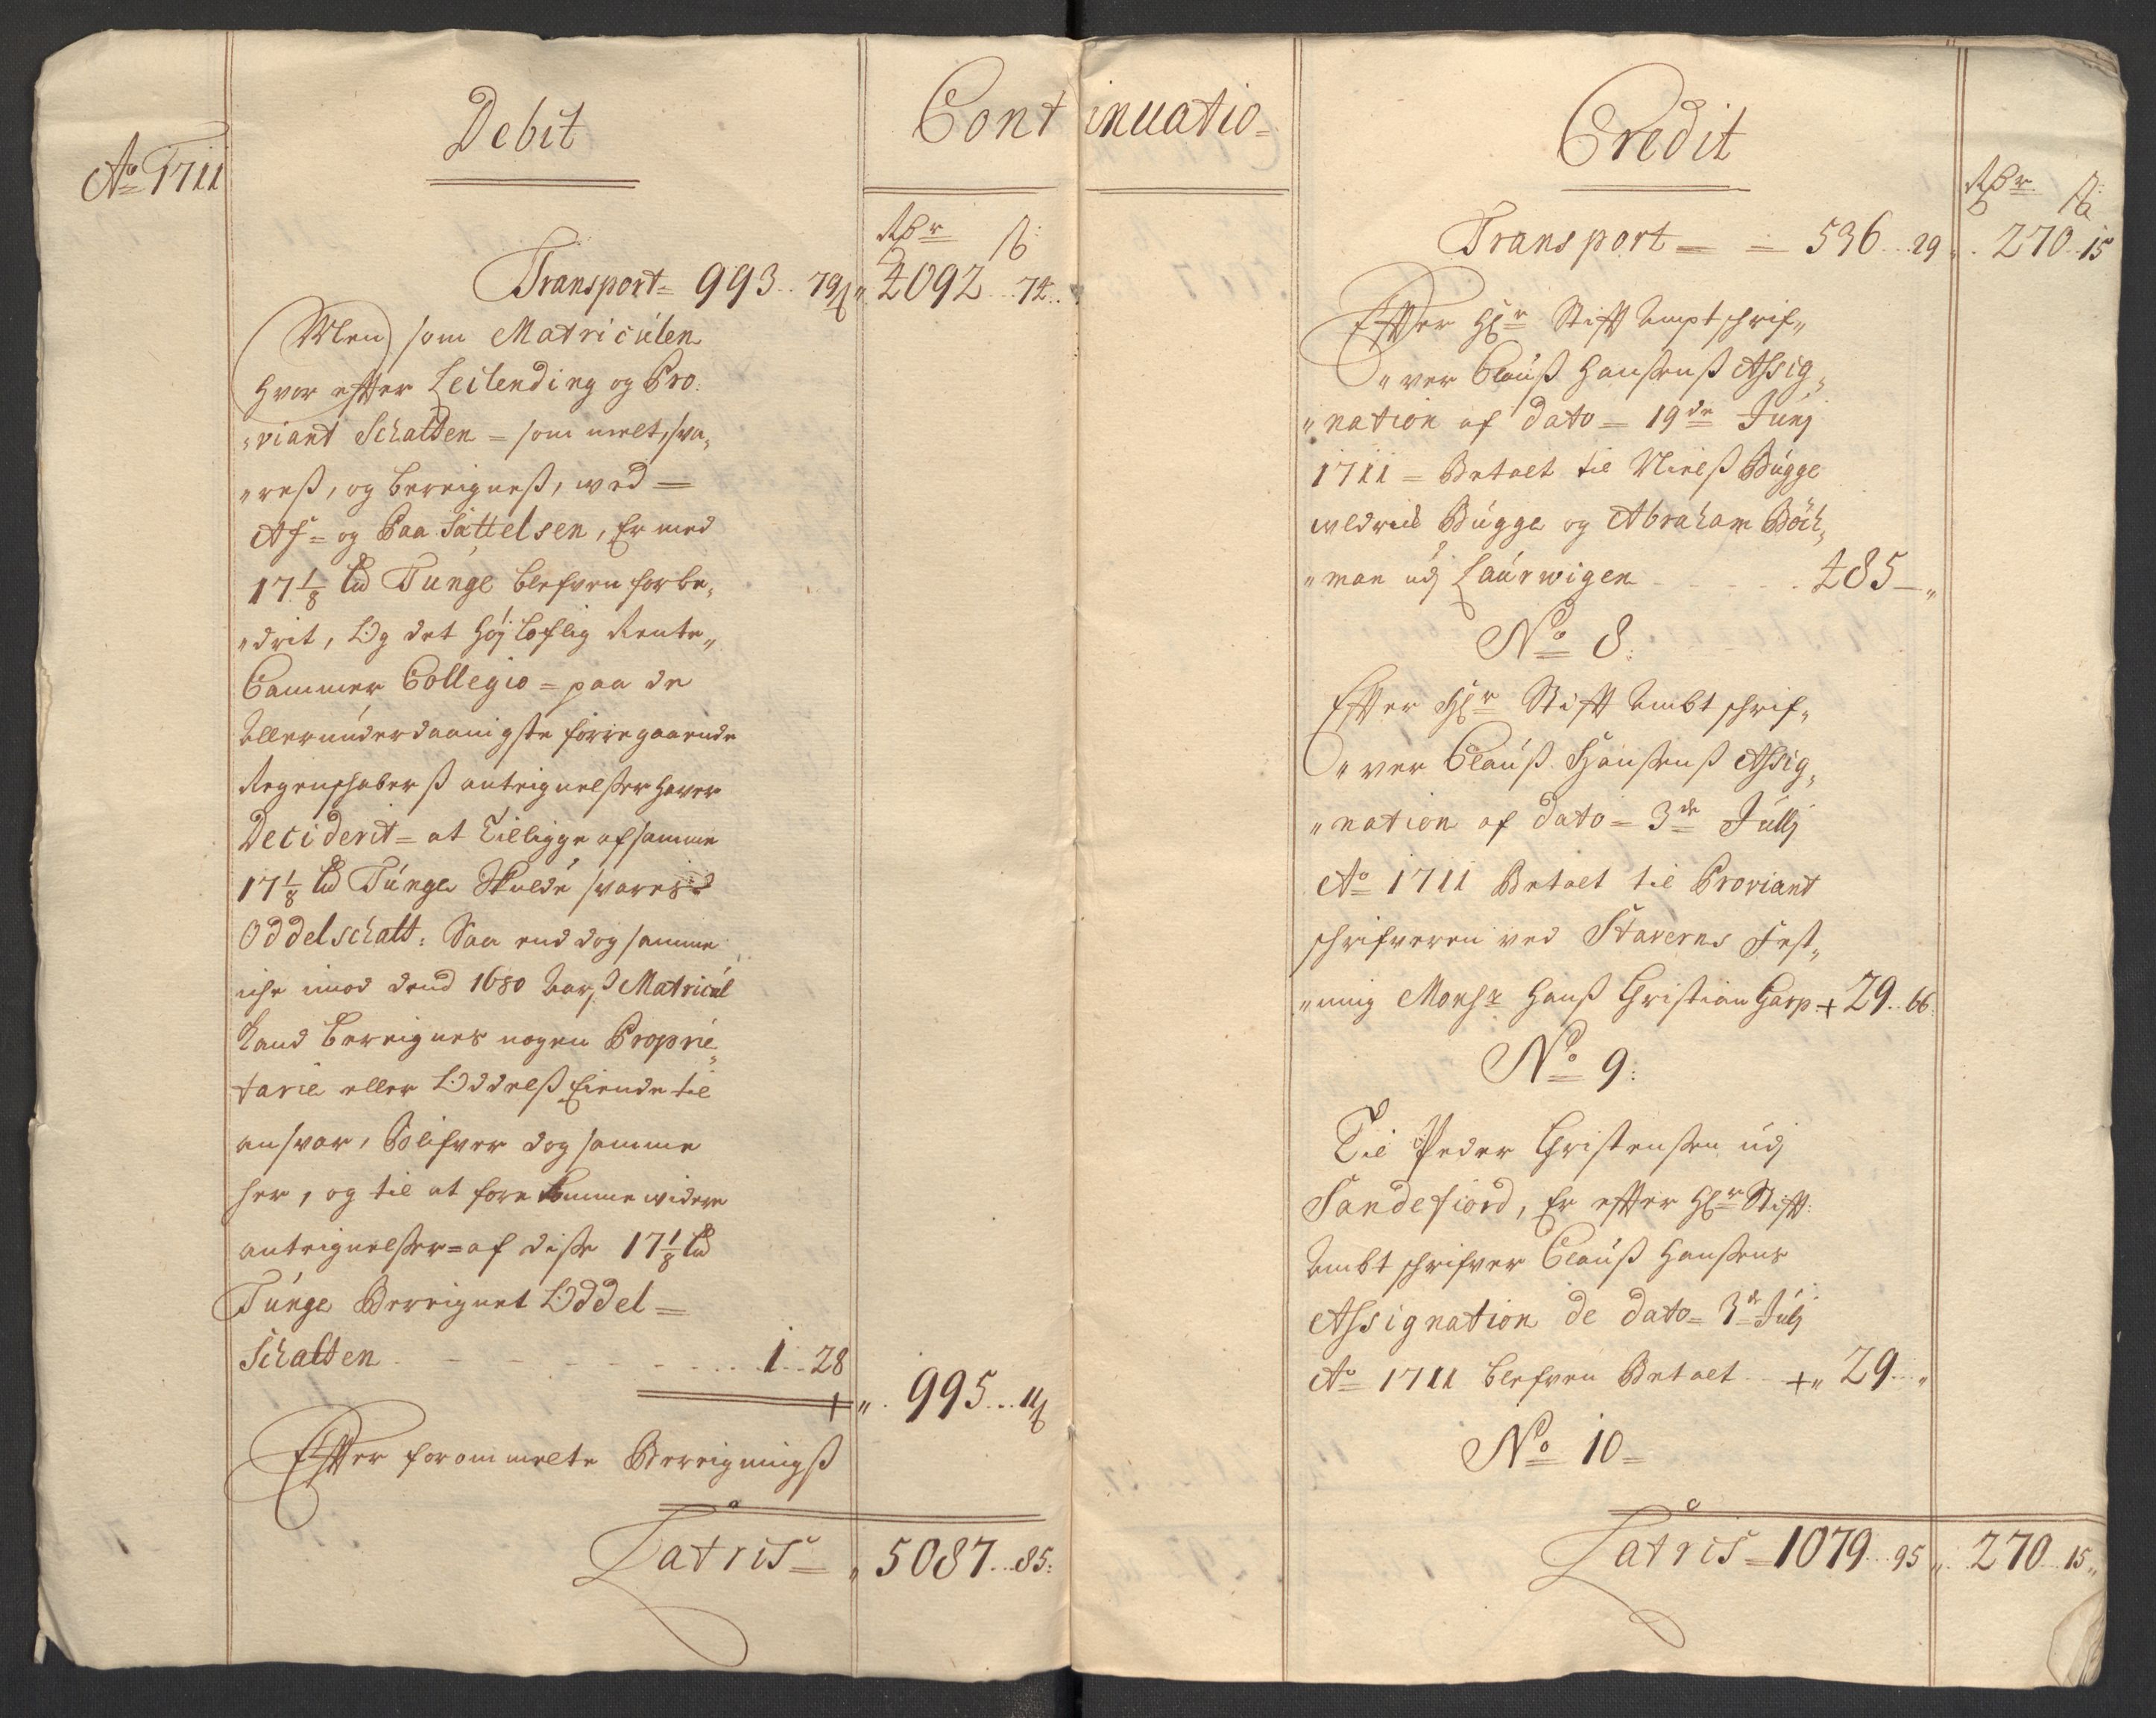 Ao 1711
Debit
Continuatio
Rdr ß
Transport = 993 .. 79 ß „ 4092 .. 74 ..
Men som Matriculen
hvor efter Leilending og Pro„
„viant Schatten = som melt, sva„
„reß, og bereigneß, wed =
Af= og Paa Sættelsen, Er med
17 1/8 Lid Tunge blefven forbe„
„drit, Og det Höj Loflig Rente„
Cammer Collegio = paa de
Allerunderdaanigste forregaaende
Regenschabers ß anteignelßer haver
Deciderit = at Tillige af samme
17 1/8 Lid Tunge Skulde svares
Oddelschatt: Saa end dog samme
iche imod dend 1680 Aarß Matricul
kand bereignes nogen Proprie„
tarie eller Oddelß Eiende til
ansvar, Blifver dog samme
her, og til at forre komme widere
antreignelßer = af diße 17 1/8 Lid
Tunge Bereignet Oddel =
Schatten - - - - - - 1 .. 28
„ 995 ... 11 ß
Efter forommelte Bereignings ß
Latris = „ 5087 ... 85:
Credit
Rdr ß
Transport = = 536 .. 29 „ . 270 .. 15
Efter Hr Stifft Ampt schrif„
„ver Clauß Hanßenß Aßig„
„nation af dato = 19de Junj
1711 = Betalt til Nielß Bugge
Bugge og Abraham Böch„
„man udj Laurwigen - - - 485 - „
No 8:
Efter Hr Stifft Ambt schrif„
„ver Clauß Hanßenß Aßig„
„nation af dato = 3de Jullj
Ao 1711 Betalt til Proviant
schrifveren ved Staverns Fest„
„ning Monsr Hanß Christian Garp + 29 .. 66
No 9:
Til Peder Christenßen udj
Sandefiord, Er efter Hr Stifft:
Ambt schrifver Clauß Hanßens
Aßignation de dato = 3de Julj
Ao 1711 blefven Betalt - + „ 29 .. „
No 10 =
Latris = 1079 .. 95 „ . 270 .. 15 „